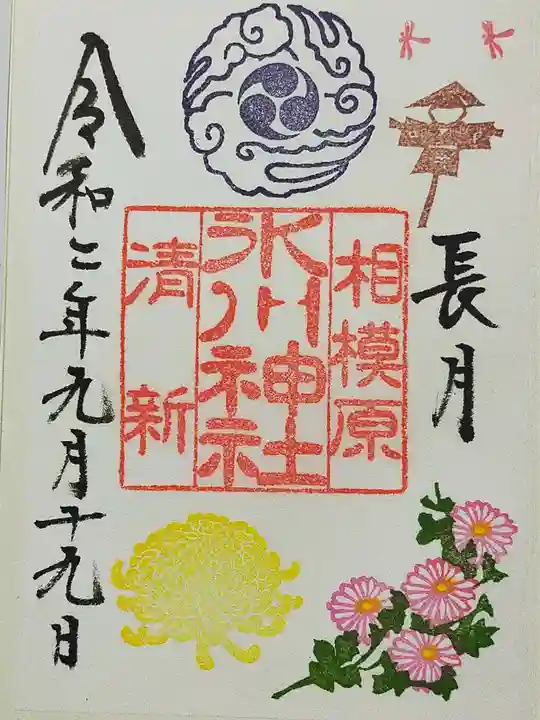 長月
相模原
氷川神社
清新
令和二年九月十九日